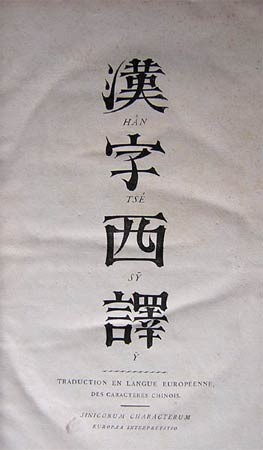 漢
HÁN
字
TSÉ
西
SȲ
譯
Ỹ
TRADUCTION EN LANGUE EUROPÉENNE,
DES CARACTERES CHINOIS.
SINICORUM CHARACTERUM
EUROPÆA INTERPRETATIO